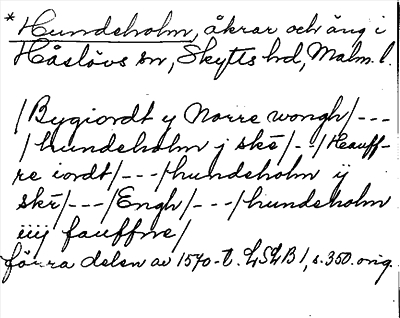 * Hundsholm, åkrar och äng i
Håslövs sn, Skytts hd, Malm. l.
/Bygiordt y Norre wongh/---
/hundeholm j skē/--/Hauff-
re iordt/---/hundeholm ij
skē/---/Engh/---/hundeholm
iiij fauffne/
förra delen av 1570-t. LSLB 1, s. 350. orig.